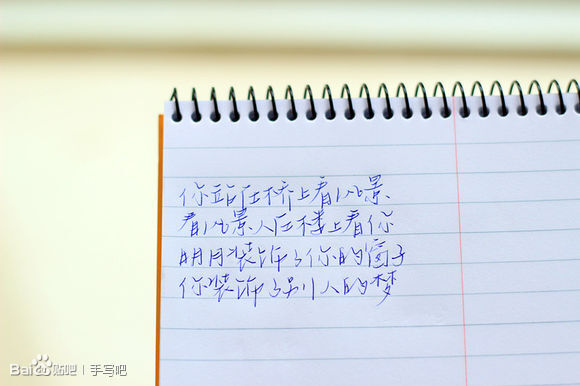 你站在桥上看风景
看风景人在楼上看你
明月装饰了你的窗子
你装饰了别人的梦
Bai贴吧 | 手写吧